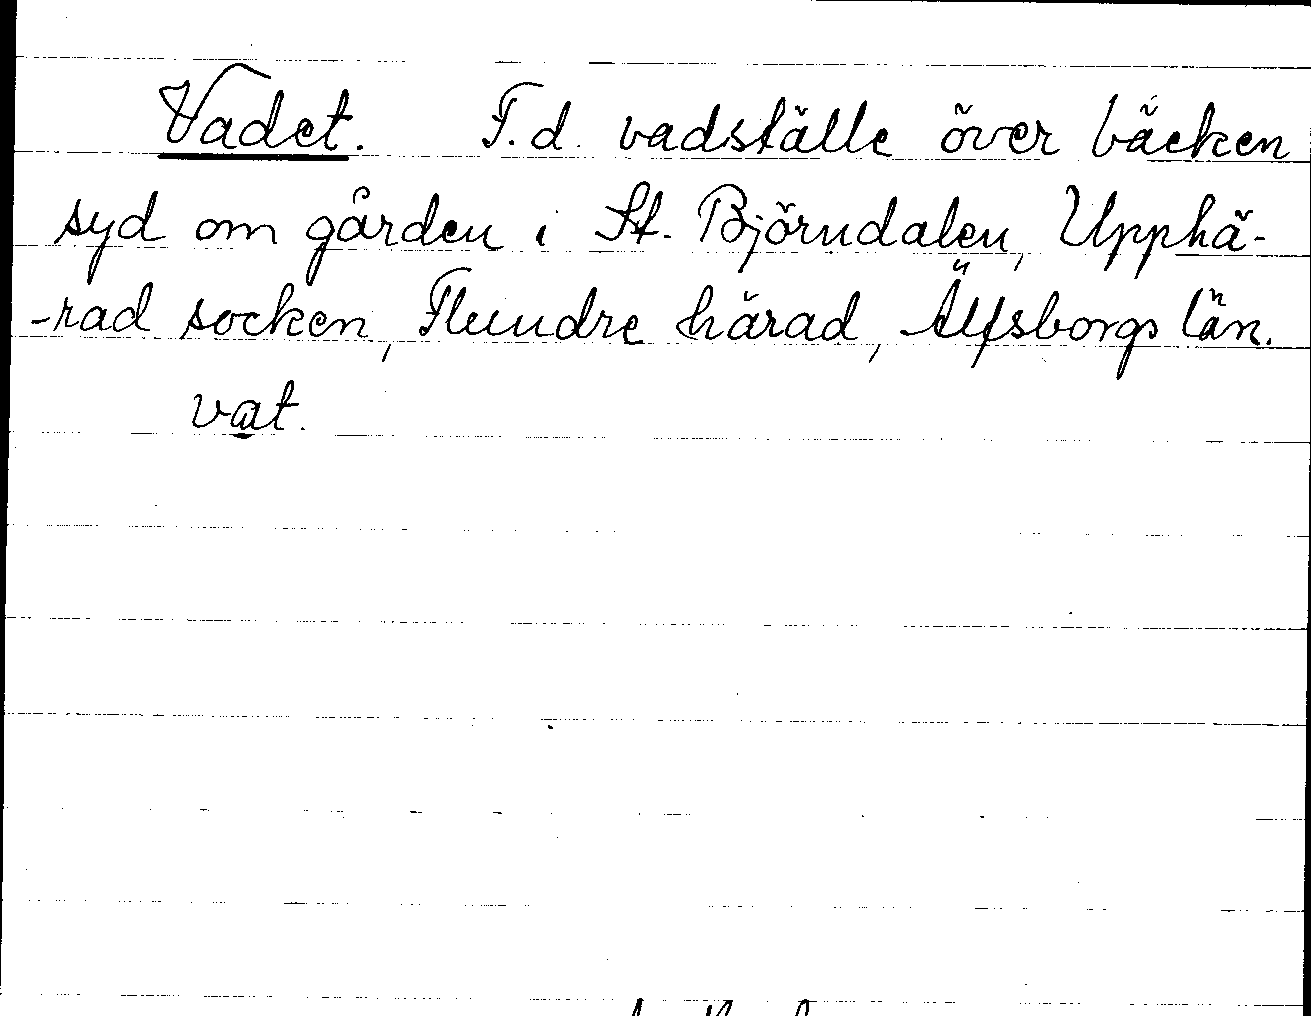 Vadet. F.d. vadställe över bäcken
syd om gården i St. Björndalen, Upphä-
-rad socken, Flundre härad, Älfsborgs län.
vat.